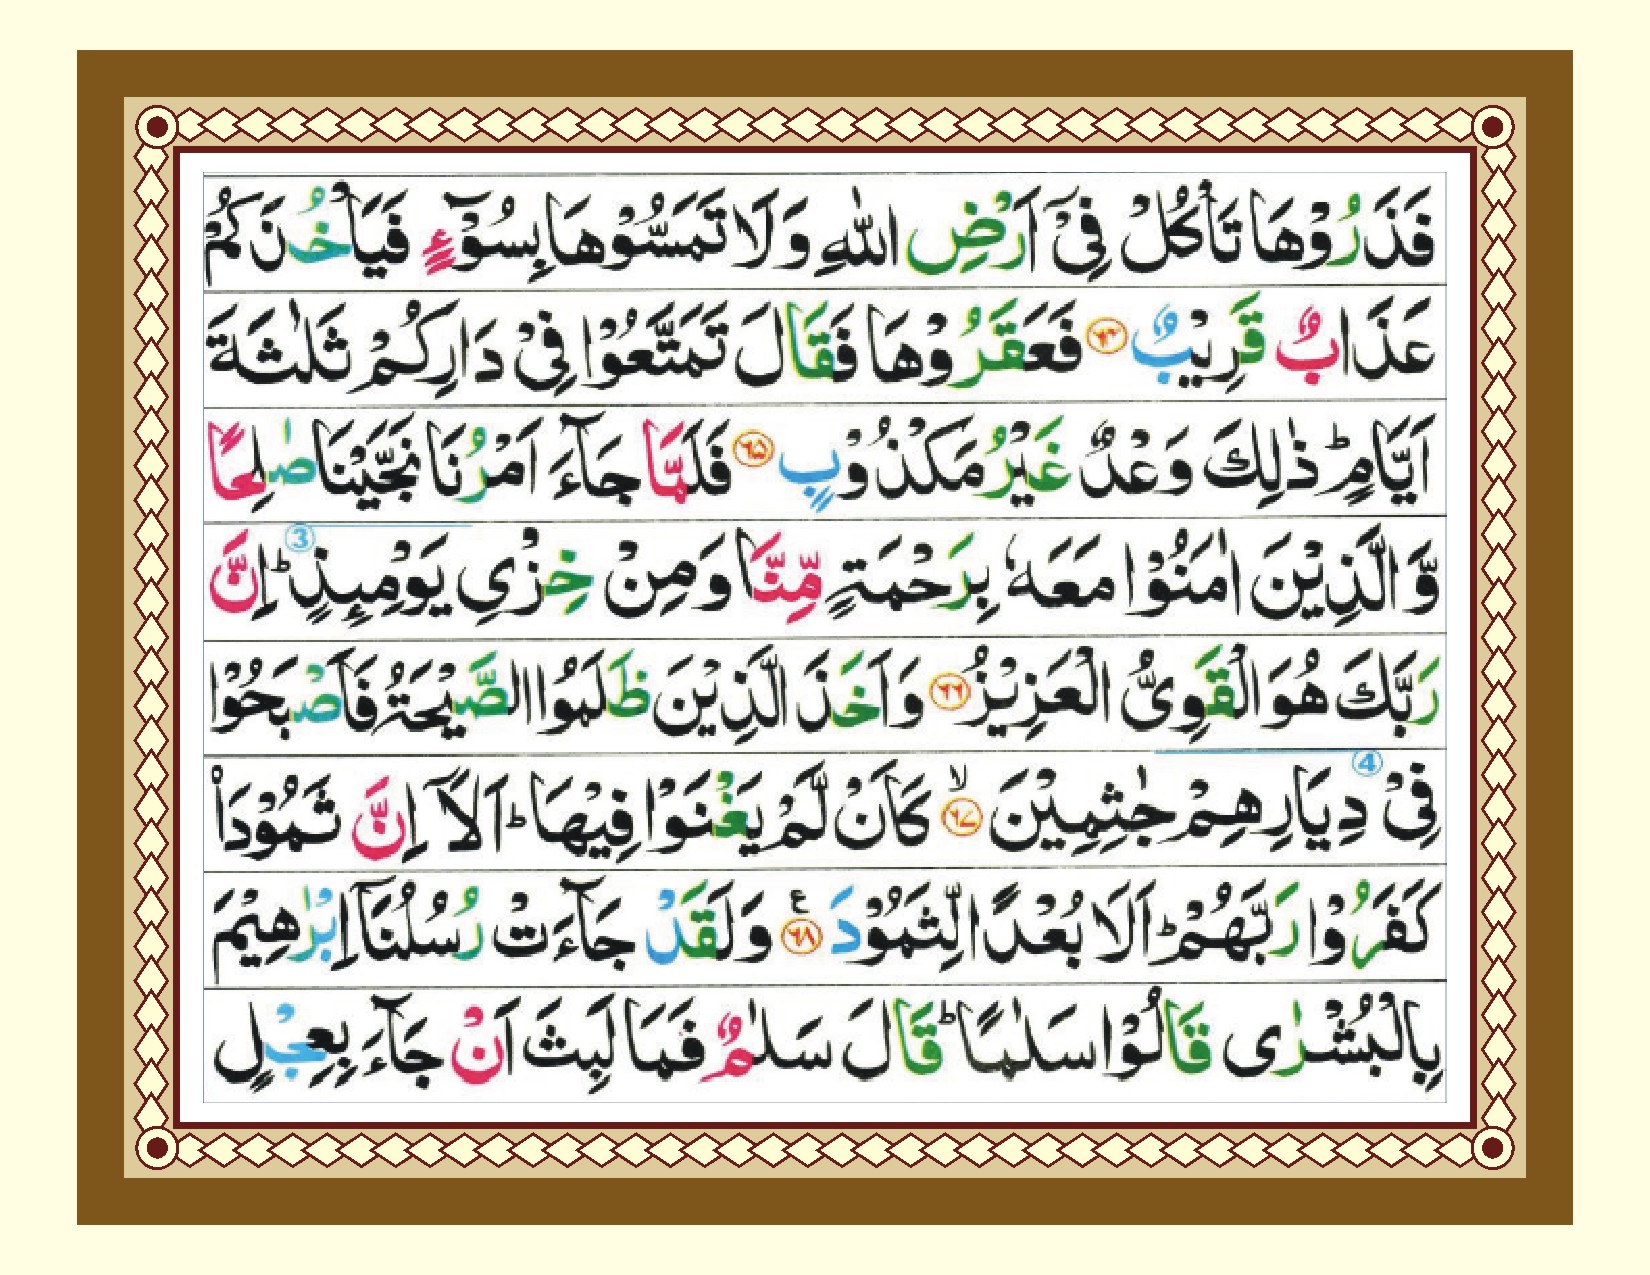 فَذَرُوْهَا تَاْكُلْ فِیْۤ اَرْضِ اللّٰهِ وَ لَا تَمَسُّوْهَا بِسُوْٓءٍ فَیَاْخُذَكُمْ
عَذَابٌ قَرِیْبٌ ﴿۶۴﴾ فَعَقَرُوْهَا فَقَالَ تَمَتَّعُوْا فِیْ دَارِكُمْ ثَلٰثَةَ
اَیَّامٍ ؕ ذٰلِكَ وَعْدٌ غَیْرُ مَكْذُوْبٍ ﴿۶۵﴾ فَلَمَّا جَآءَ اَمْرُنَا نَجَّیْنَا صٰلِحًا
وَّ الَّذِیْنَ اٰمَنُوْا مَعَهٗ بِرَحْمَةٍ مِّنَّا وَ مِنْ خِزْیِ یَوْمِىِٕذٍ ؕ اِنَّ 3
رَبَّكَ هُوَ الْقَوِیُّ الْعَزِیْزُ ﴿۶۶﴾ وَ اَخَذَ الَّذِیْنَ ظَلَمُوا الصَّیْحَةُ فَاَصْبَحُوْا
فِیْ دِیَارِهِمْ جٰثِمِیْنَ ۙ﴿۶۷﴾ كَاَنْ لَّمْ یَغْنَوْا فِیْهَا ؕ اَلَاۤ اِنَّ ثَمُوْدَاۡ 4
كَفَرُوْا رَبَّهُمْ ؕ اَلَا بُعْدًا لِّثَمُوْدَ ﴿۶۸﴾ ع وَ لَقَدْ جَآءَتْ رُسُلُنَاۤ اِبْرٰهِیْمَ
بِالْبُشْرٰی قَالُوْا سَلٰمًا ؕ قَالَ سَلٰمٌ فَمَا لَبِثَ اَنْ جَآءَ بِعِجْلٍ